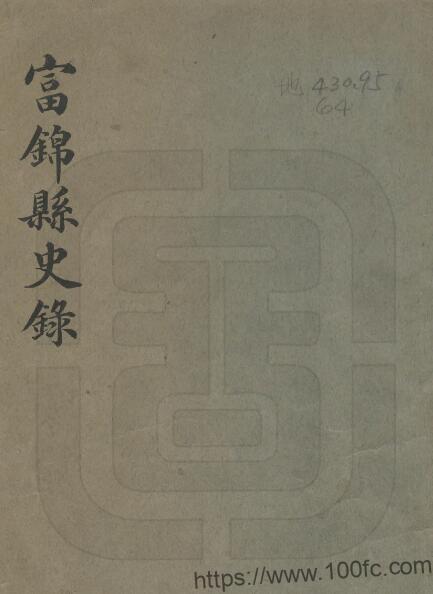 富錦縣史錄
地 430.95
64
https://www.100fc.com